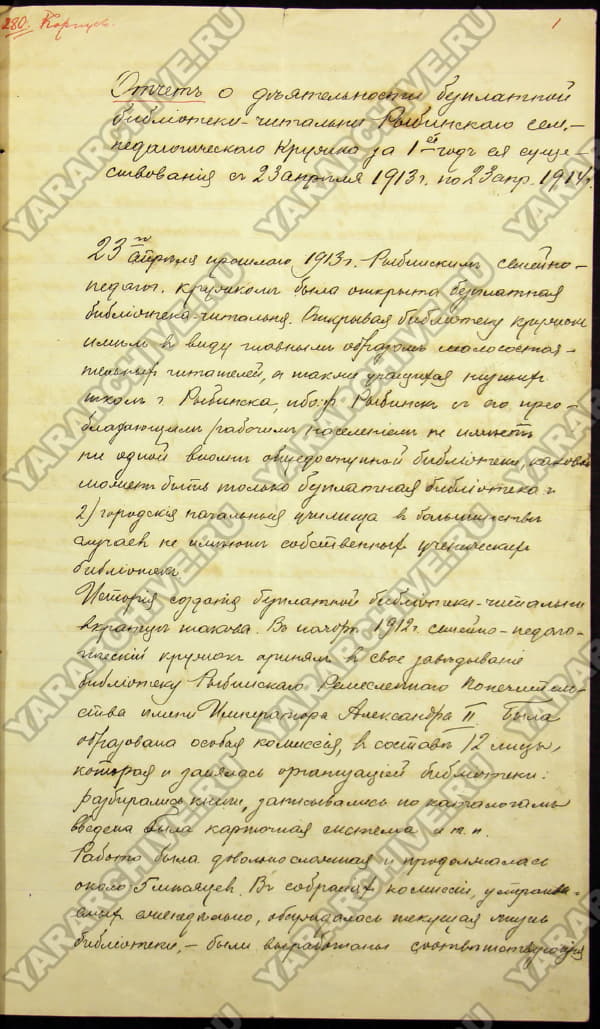 280. Корпусъ.
1
Отчетъ о дѣятельности безплатной
библіотеки-читальни Рыбинскаго сем.-
педагогическаго Кружка за 1ый годъ ея суще-
ствованія съ 23 апрѣля 1913г. по 23 апр. 1914г.
23го апрѣля прошлаго 1913г. Рыбинскимъ семейно-
педагог. кружкомъ была открыта безплатная
библіотека-читальня. Открывая библіотеку кружокъ
имѣлъ въ виду главнымъ образомъ малосостоя-
тельныхъ читателей, а также учащихся низшихъ
школъ г. Рыбинска, ибо: Рыбинскъ съ его прео-
бладающимъ рабочимъ населеніемъ не имѣетъ
ни одной вполнѣ общедоступной библіотеки, каковой
можетъ быть только безплатная библіотека и
2) городскія начальныя училища въ большинствѣ
случаевъ не имѣютъ собственныхъ ученическихъ
библіотекъ.
Исторія созданія безплатной библіотеки-читальни
вкратцѣ такова. Въ ноябрѣ 1912г. семейно-педаго-
гическій кружокъ принялъ въ свое завѣдываніе
библіотеку Рыбинскаго Ремесленнаго Попечитель-
ства имени Императора Александра II. Была
образована особая комиссія, въ составѣ 12 лицъ,
которая и занялась организаціей библіотеки:
разбирались книги, записывались по каталогамъ
введена была карточная система и т. п.
Работа была довольно сложная и продолжалась
около 5 мѣсяцевъ. Въ собраніяхъ комиссіи, устраива-
емыхъ еженедѣльно, обсуждалась текущая жизнь
библіотеки, - были выработаны соотвѣтствующія
YARARCHIVE.RU